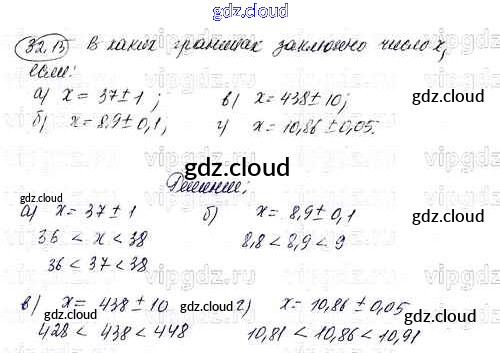 gdz.cloud
32.15 В каких границах заключено число x,
если:
а) x = 37 ± 1 ; в) x = 438 ± 10;
б) x = 8,9 ± 0,1; г) x = 10,86 ± 0,05.
gdz.cloud gdz.cloud
gdz.cloud
Решение:
gdz.cloud gdz.cloud
а) x = 37 ± 1 б) x = 8,9 ± 0,1
36 < x < 38 8,8 < 8,9 < 9
36 < 37 < 38
gdz.cloud gdz.cloud
в) x = 438 ± 10 г) x = 10,86 ± 0,05
428 < 438 < 448 10,81 < 10,86 < 10,91
gdz.cloud